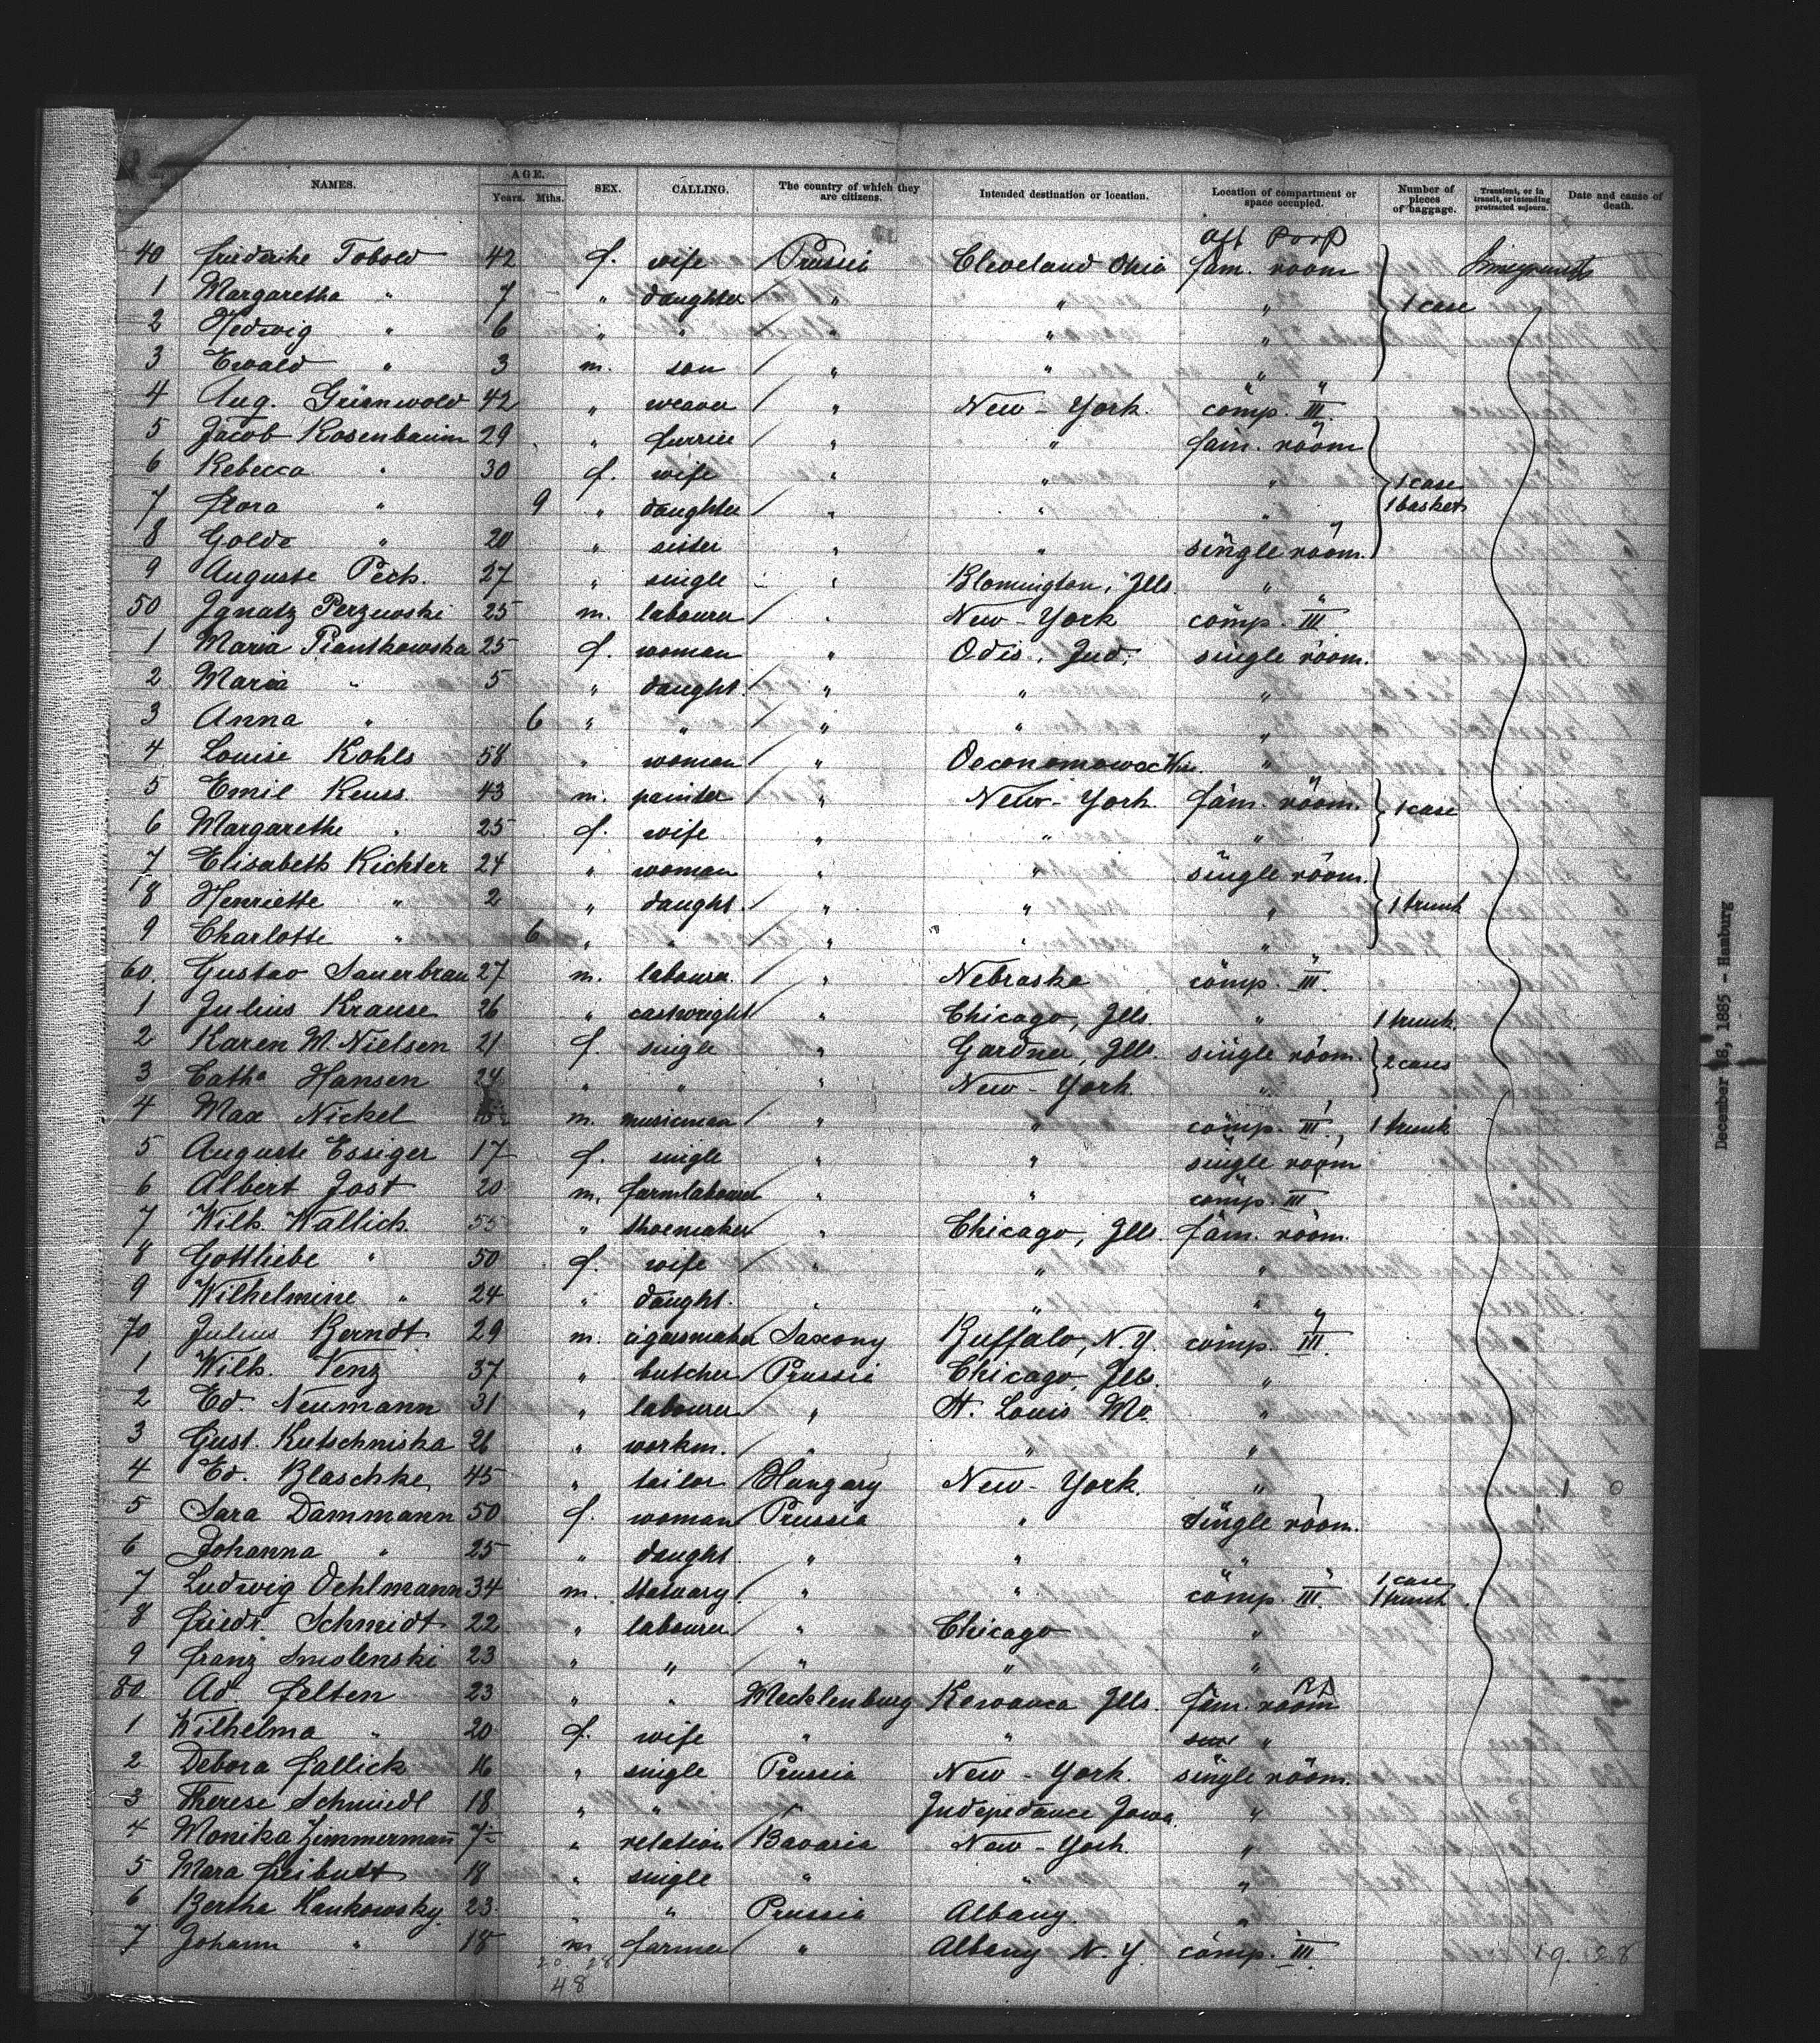 NAMES. AGE. Years. Mths. SEX. CALLING. The country of which they are citizens. Intended destination or location. Location of compartment or space occupied. Number of pieces of baggage. Transient, or in transit, or intending protracted sojourn. Date and cause of death.
aft Poop
40 Friederike Tobold 42 f. wife Prussia Cleveland Ohio fam. room
1 Margaretha " 7 " daughter " " " 1 case
2 Hedwig " 6 " " " " "
3 Ewald " 3 m. son " " "
4 Aug. Grünwold 42 " weaver " New-York. comp. III.
5 Jacob Rosenbaum 29 " furrier " " fam. room
6 Rebecca " 30 f. wife " " " 1 case
7 Flora " 9 " daughter " " " 1 basket
8 Golde " 20 " sister " " single room.
9 Auguste Pech. 27 " single " Blomington, Ills. "
50 Ignatz Perzewski 25 m. labourer " New-York comp. III
1 Maria Piantkowska 25 f. woman " Odis, Ind. single room.
2 Maria " 5 " daught. " " "
3 Anna " 6 " " " " "
4 Louise Kohls 58 " woman " Oeconomowoc Wis. "
5 Emil Kuss 43 m. painter " New-York. fam. room. 1 case
6 Margarethe " 25 f. wife " " "
7 Elisabeth Richter 24 " woman " " single room.
8 Henriette " 2 " daught. " " " 1 trunk
9 Charlotte " 6 " " " " "
60. Gustav Sauerbrau 27 m. labourer. " Nebraska comp. III.
1 Julius Krause 26 " cartwright " Chicago, Ills. " 1 trunk.
2 Karen M. Nielsen 21 f. single " Gardner, Ills. single room. 2 cases
3 Catha Hansen 24 " " " New-York. "
4 Max Nickel m. musicman " " comp. III. 1 trunk
5 Auguste Essiger 17 f. single " " single room
6 Albert Jost 20 m. farmlabourer " " comp. III
7 Wilh. Wallich. 55 " shoemaker " Chicago, Ills. fam. room.
8 Gottliebe " 50 f. wife " " "
9 Wilhelmine " 24 " daught. " " "
70 Julius Berndt 29 m. cigarsmaker Saxony Buffalo, N.Y. comp. III.
1 Wilh. Venz 37 " butcher Prussia Chicago, Ills. "
2 Ed. Neumann 31 " labourer " St. Louis Mo. "
3 Gust. Kutschniska 26 " workm. " " "
4 Ed. Blaschke 45 " tailor Hungary New-York. " 1 0
5 Sara Dammann 50 f. woman Prussia " single room.
6 Johanna " 25 " daught. " " "
7 Ludwig Oehlmann 34 m. statuary. " " comp. III. 1 case 1 trunk
8 Friedr. Schmidt 22 " labourer " Chicago "
9 Franz Smolenski 23 " " " " "
80. Ad. Felten 23 " " Mecklenburg Kewanca Ills. fam. room
1 Wilhelma " 20 f. wife " " "
2 Debora Fallick 16 " single Prussia New-York. single room.
3 Therese Schmiedl 18 " " " Indepedance Iowa. "
4 Monika Zimmermann 7 " relation Bavaria New-York. "
5 Mara Freibutt 18 " single " " "
6 Bertha Kankowsky. 23. " " Prussia Albany. "
7 Johann " 18 m farmer " Albany N.Y. comp. III. 19. 28
20. 28
48
December 18, 1885 - Hamburg